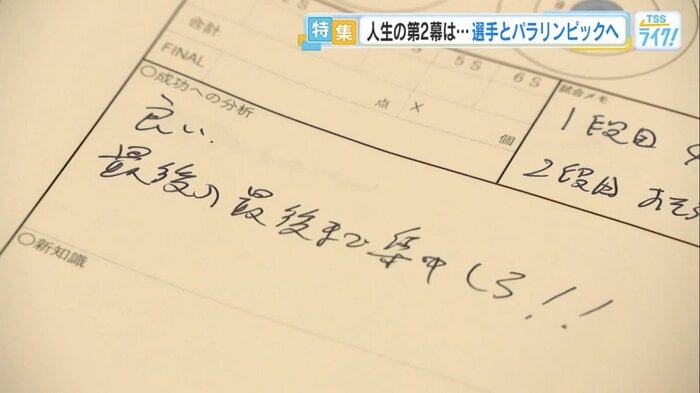 特集 人生の第2幕は…選手とパラリンピックへ
TSS
ライク!
合計
5S 6S
FINAL
点 X 個
試合メモ
○成功への分析
1段目
2段目
良い.
最後の最後まで集中しろ!!
○新知識